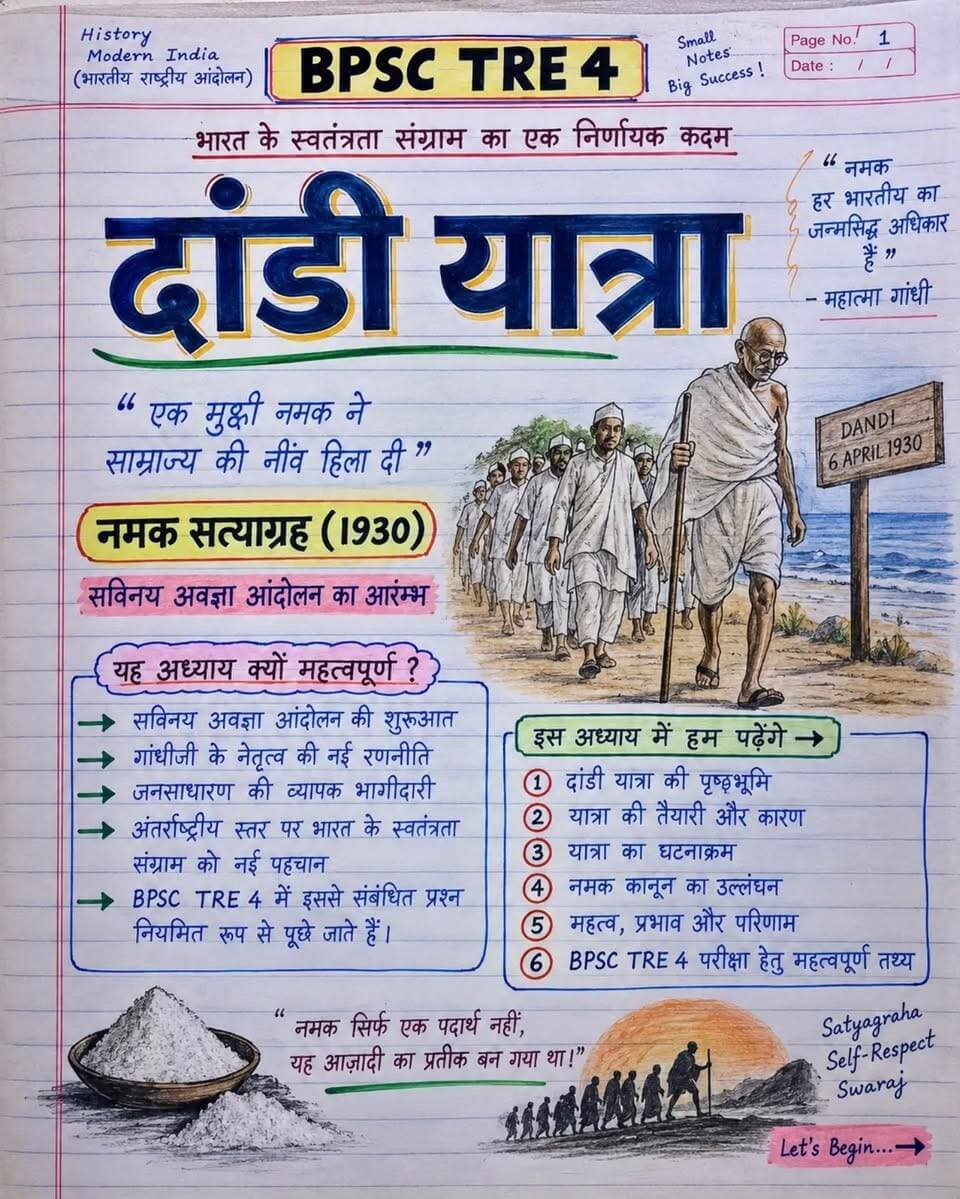 History
Modern India
(भारतीय राष्ट्रीय आंदोलन)
BPSC TRE 4
Small
Notes
Big Success !
Page No. 1
Date : / /
भारत के स्वतंत्रता संग्राम का एक निर्णायक कदम
दांडी यात्रा
“ नमक
हर भारतीय का
जन्मसिद्ध अधिकार
हैं ”
- महात्मा गांधी
“ एक मुठ्ठी नमक ने
साम्राज्य की नींव हिला दी ”
DANDI
6 APRIL 1930
नमक सत्याग्रह (1930)
सविनय अवज्ञा आंदोलन का आरंभ
यह अध्याय क्यों महत्वपूर्ण ?
→ सविनय अवज्ञा आंदोलन की शुरूआत
→ गांधीजी के नेतृत्व की नई रणनीति
→ जनसाधारण की व्यापक भागीदारी
→ अंतर्राष्ट्रीय स्तर पर भारत के स्वतंत्रता
संग्राम को नई पहचान
→ BPSC TRE 4 में इससे संबंधित प्रश्न
नियमित रूप से पूछे जाते हैं।
इस अध्याय में हम पढ़ेंगे →
1 दांडी यात्रा की पृष्ठभूमि
2 यात्रा की तैयारी और कारण
3 यात्रा का घटनाक्रम
4 नमक कानून का उल्लंघन
5 महत्व, प्रभाव और परिणाम
6 BPSC TRE 4 परीक्षा हेतु महत्वपूर्ण तथ्य
“ नमक सिर्फ एक पदार्थ नहीं,
यह आज़ादी का प्रतीक बन गया था!”
Satyagraha
Self-Respect
Swaraj
Let's Begin... →